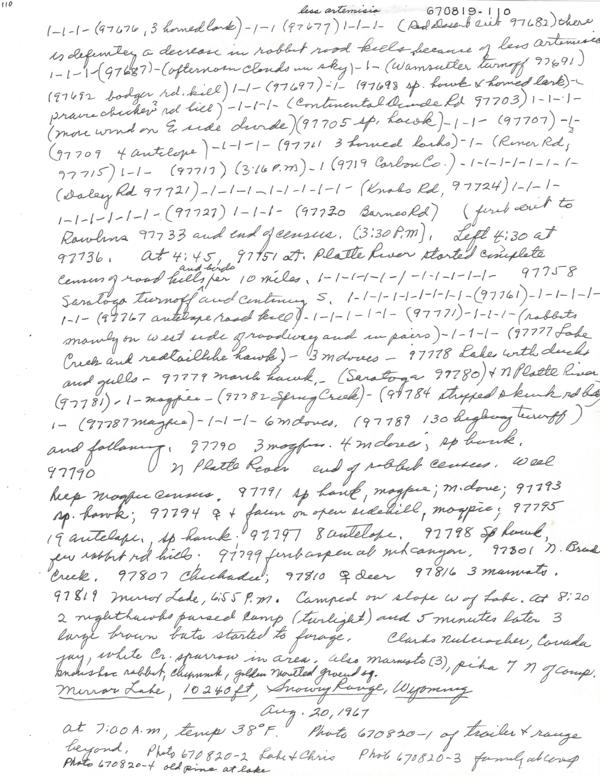 110
less artemisia 670819-110
1-1-1- (97676, 3 horned lark) -1-1 (97677) 1-1-1- (Red Desert exit 97682) there
is definitely a decrease in rabbit road kills because of less artemisia
1-1-1-(97687)-(afternoon clouds in sky)-1-(Wamsutter turnoff 97691)
(97692 badger rd. kill) 1-1-(97697)-1-(97698 sp. hawk & horned lark)-
prairie chicken rd kill)-1-1-1-(Continental Divide Rd 97703) 1-1-1-
(more wind on E side divide)(97705 sp. hawk)-1-1-(97707)-1-
(97709 4 antelope)-1-1-1-(97711 3 horned larks)-1-(Riner Rd,
97715) 1-1-(97717) (3:16 P.M)-1 (9719 Carbon Co.)-1-1-1-1-1-1-1-
(Daley Rd 97721)-1-1-1-1-1-1-1-1-(Knobs Rd, 97724) 1-1-1-
1-1-1-1-1-1-(97727) 1-1-1-(97730 Barnes Rd) (first exit to
Rawlins 97733 and end of census. (3:30 P.M). Left 4:30 at
97736. At 4:45, 97751 at Platte River started complete
census of road kills and birds per 10 miles. 1-1-1-1-1-1-1-1-1-1- 97758
Saratoga turnoff and continuing S. 1-1-1-1-1-1-1-1-(97761)-1-1-1-1-
1-1-(97767 antelope road kill)-1-1-1-1-1-(97771)-1-1-1-(rabbits
mainly on west side of roadway and in pairs)-1-1-1-(97777 Lake
Creek and redtaillike hawk)-3 m doves-97778 Lakes with ducks
and gulls-97779 marsh hawk.-(Saratoga 97780) & N Platte River
(97781)-1-magpie-(97782 Spring Creek)-(97784 striped skunk rd kill)
1-(97787 magpie)-1-1-1-6 m doves. (97789 130 highway turnoff)
and following. 97790 3 magpies. 4 m doves; sp hawk.
97790 N Platte River end of rabbit census. Well
keep magpie census. 97791 sp hawk, magpie; m. dove; 97793
sp. hawk; 97794 ♀ & fawn on open sidehill, magpie; 97795
19 antelope, sp hawk. 97797 8 antelope. 97798 Sp hawk,
few rabbit rd kills. 97799 first aspen at mt canyon. 97801 N. Brush
Creek. 97807 Chickadee; 97810 ♀ deer 97816 3 marmots.
97819 Mirror Lake, 6:55 P.M. Camped on slope W of Lake. At 8:20
2 nighthawks passed camp (twilight) and 5 minutes later 3
large brown bats started to forage. Clarks Nutcracker, Canada
jay, white Cr. sparrow in area. Also marmots (3), pika 7 N of camp.
Snowshoe rabbit, chipmunk, golden mantled ground sq.
Mirror Lake, 10240 ft, Snowy Range, Wyoming
Aug. 20, 1967
At 7:00 A.m, temp 38°F. Photo 670820-1 of trailer & range
beyond. Photo 670820-2 Lake & Chris Photo 670820-3 family at camp
Photo 670820-4 old pine at lake